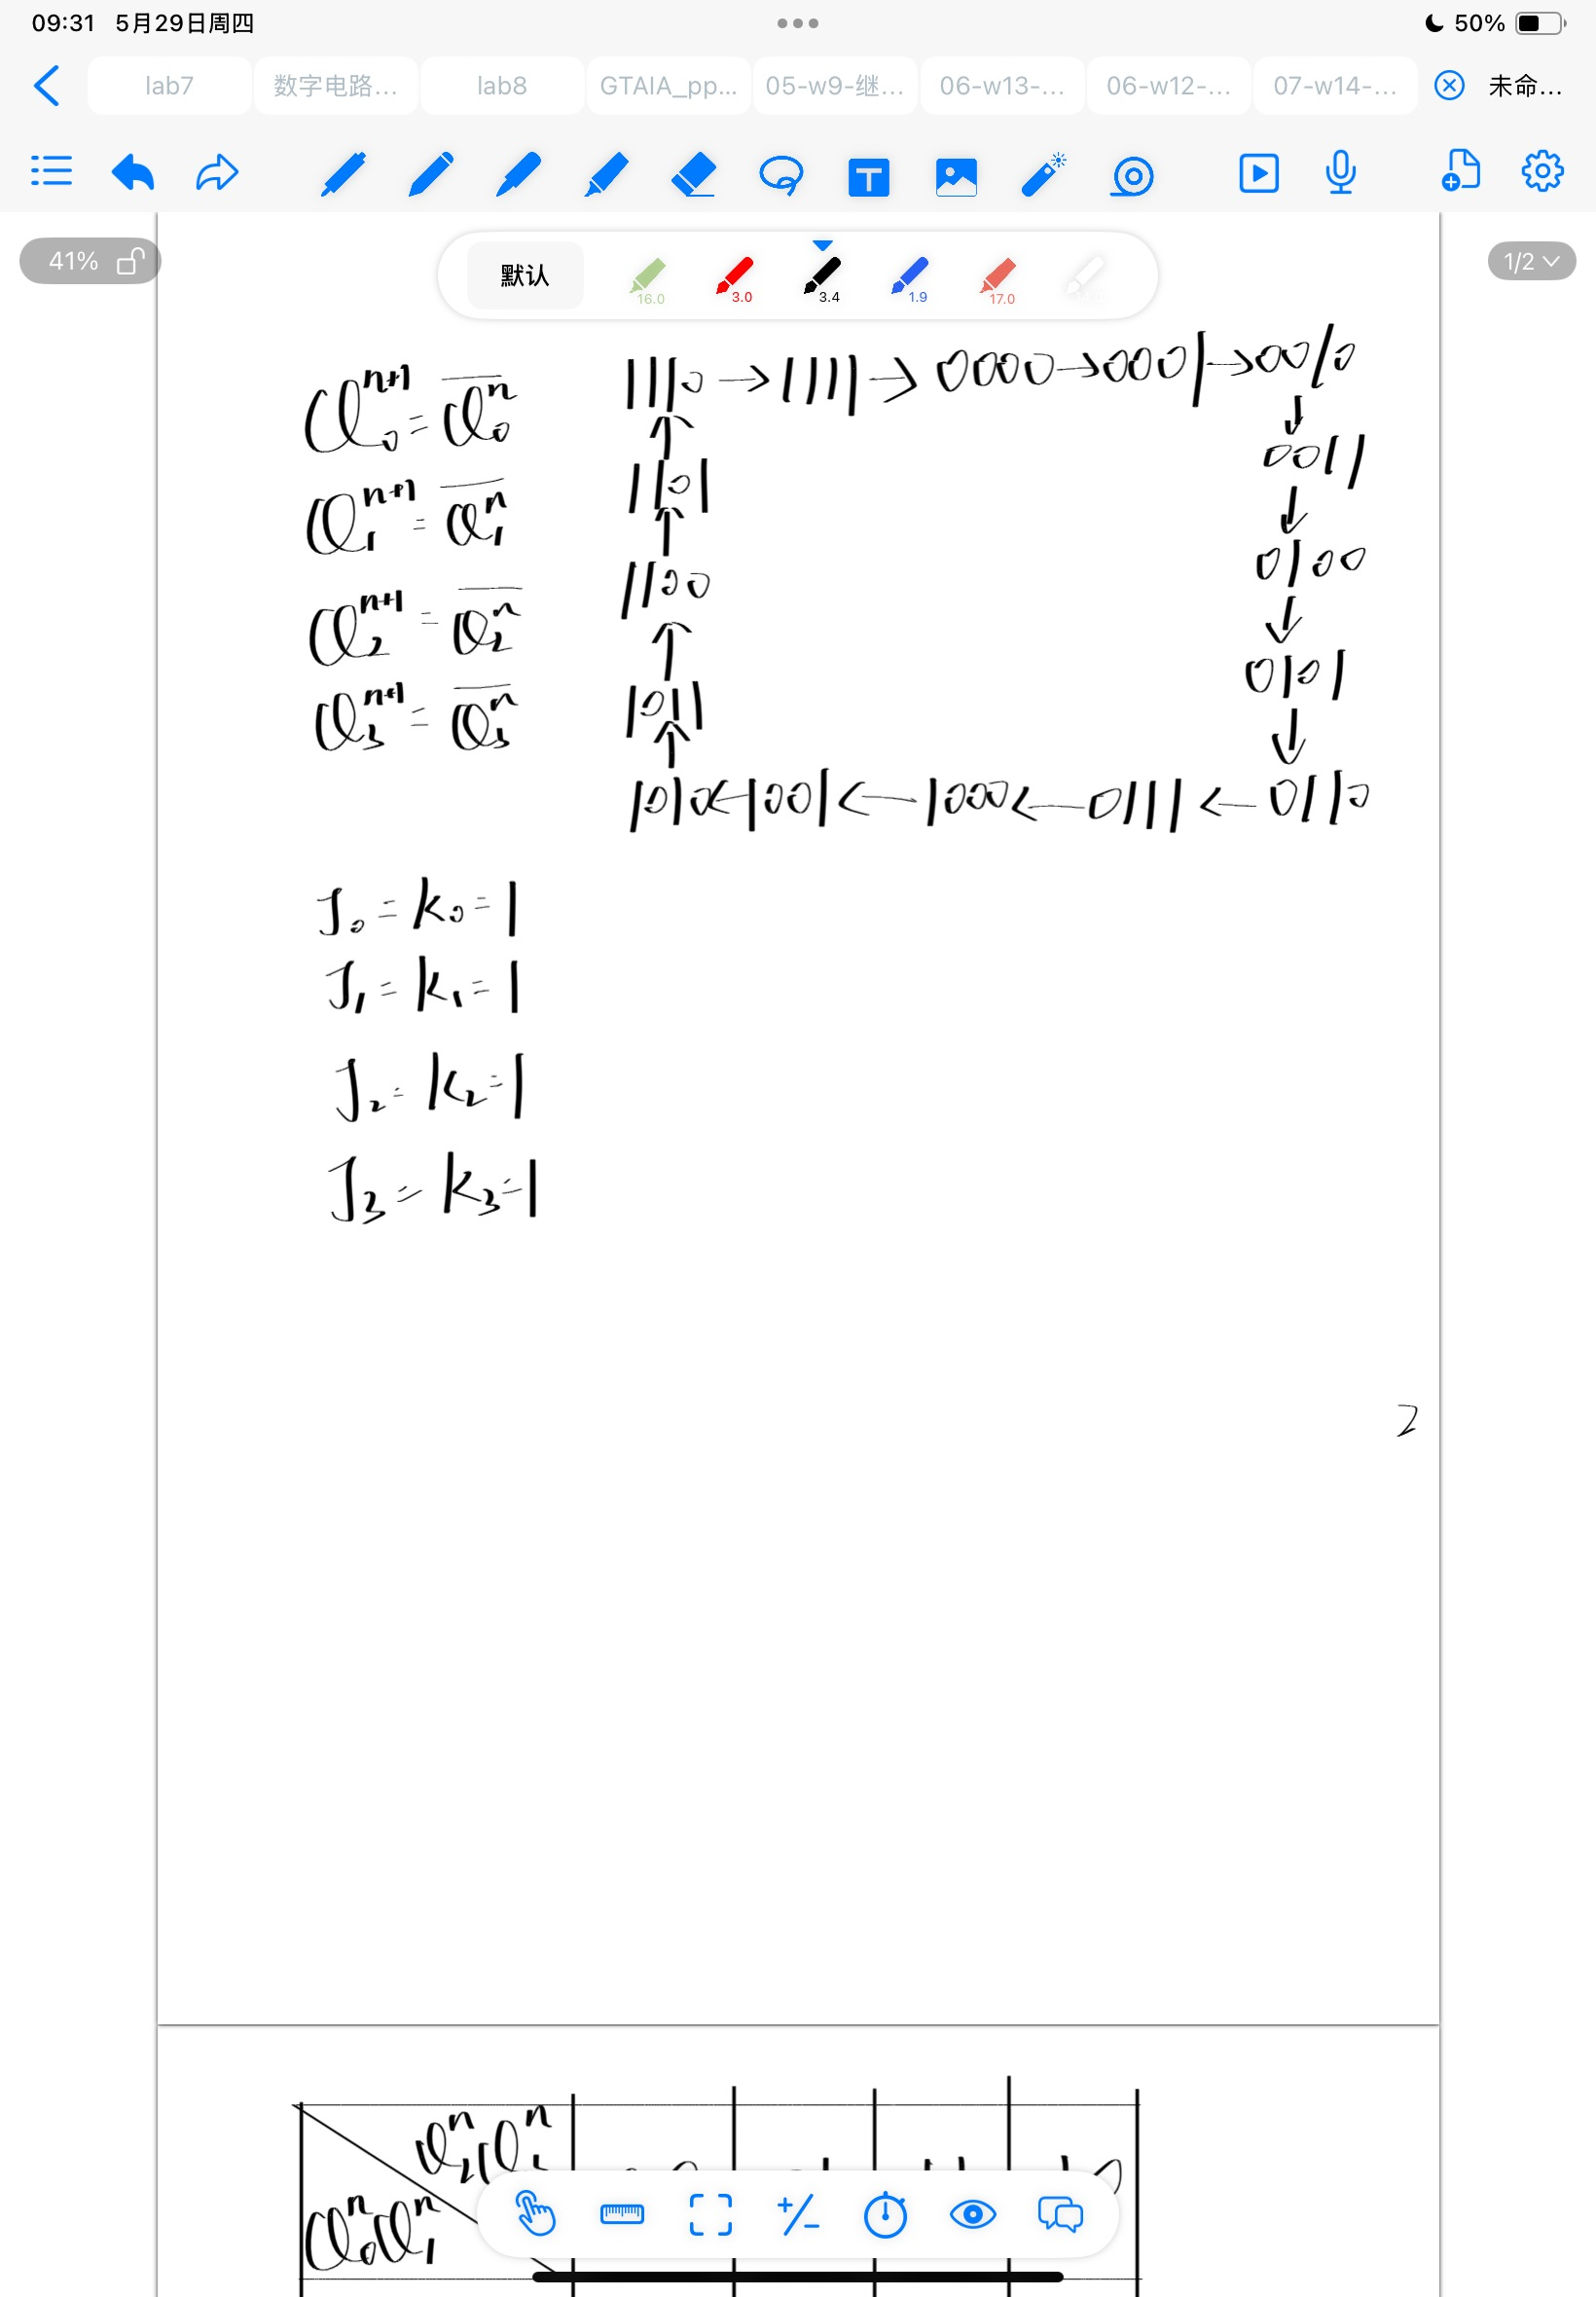 09:31 5月29日周四 50%
lab7 数字电路... lab8 GTAIA_pp... 05-w9-继... 06-w13-... 06-w12-... 07-w14-... 未命...
41% 默认 16.0 3.0 3.4 1.9 17.0 1/2
Q₀ⁿ⁺¹ = Q̅₀ⁿ
Q₁ⁿ⁺¹ = Q̅₁ⁿ
Q₂ⁿ⁺¹ = Q̅₂ⁿ
Q₃ⁿ⁺¹ = Q̅₃ⁿ
1110 → 1111 → 0000 → 0001 → 0010
↑ ↓
1101 0011
↑ ↓
1100 0100
↑ ↓
1011 0101
↑ ↓
1010 ← 1001 ← 1000 ← 0111 ← 0110
J₀ = K₀ = 1
J₁ = K₁ = 1
J₂ = K₂ = 1
J₃ = K₃ = 1
2
Q₀ⁿQ₁ⁿ